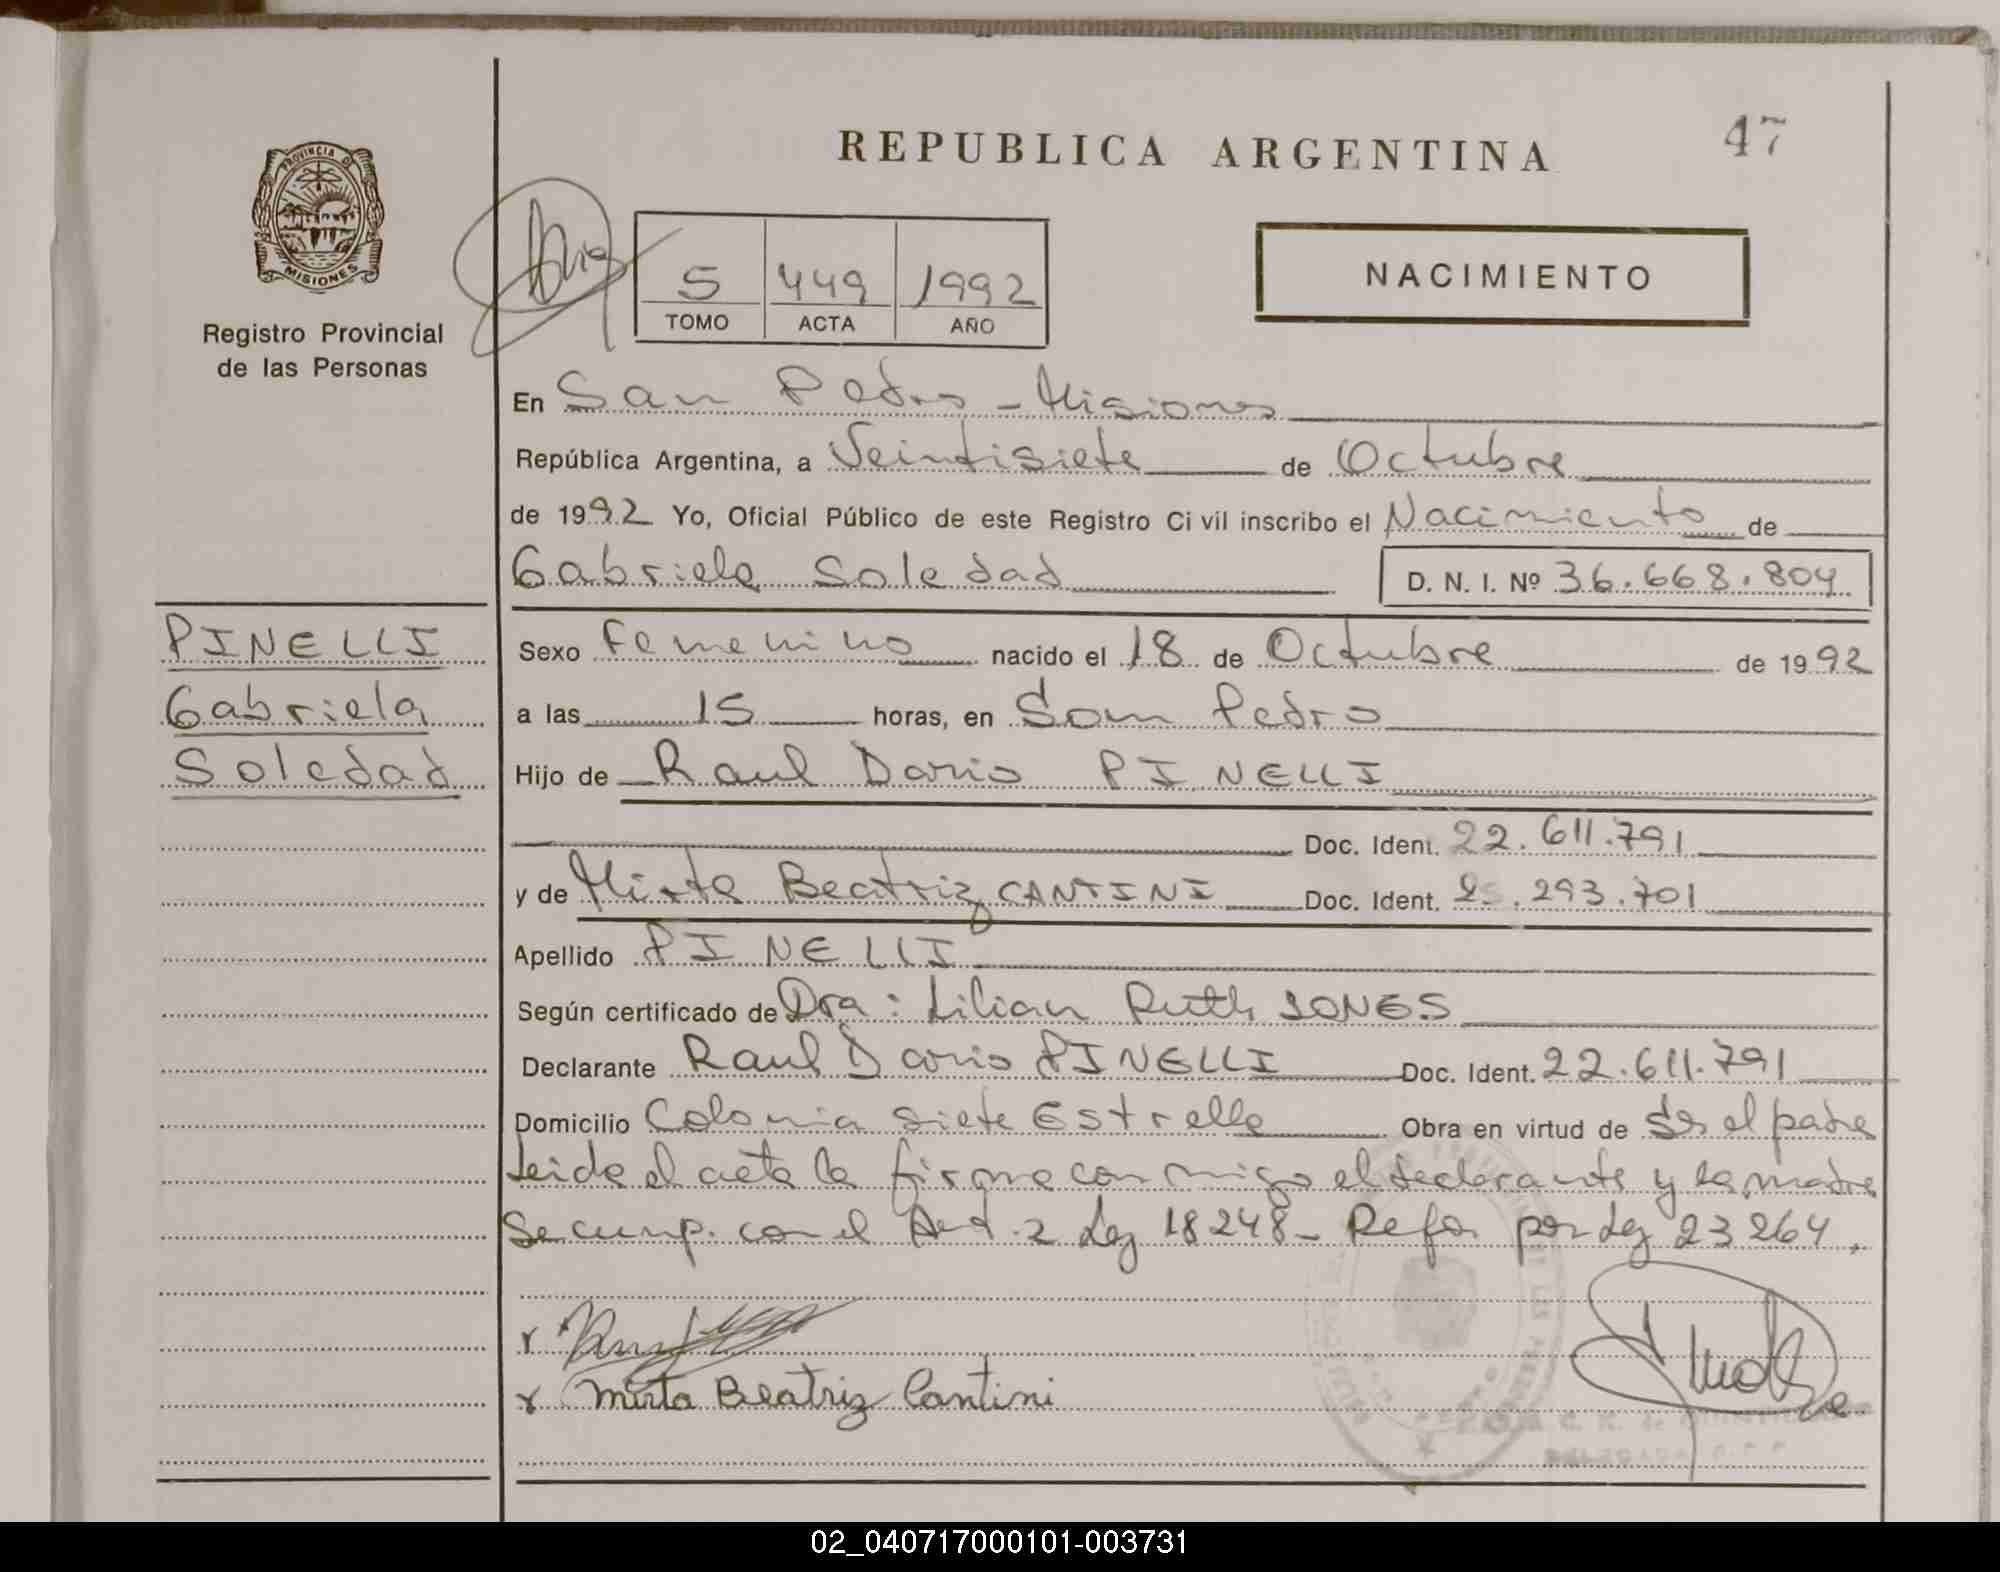 47
REPUBLICA ARGENTINA
PROVINCIA DE
MISIONES
Registro Provincial
de las Personas
5 449 1992
TOMO ACTA AÑO
NACIMIENTO
En San Pedro - Misiones
República Argentina, a Veintisiete de Octubre
de 1992 Yo, Oficial Público de este Registro Civil inscribo el Nacimiento de
Gabriela Soledad D. N. I. Nº 36.668.804
PINELLI
Gabriela
Soledad
Sexo Femenino nacido el 18 de Octubre de 1992
a las 15 horas, en San Pedro
Hijo de Raul Dario PINELLI
Doc. Ident. 22.611.791
y de Mirta Beatriz CANTINI Doc. Ident. 25.293.701
Apellido PINELLI
Según certificado de Dra: Lilian Ruth JONES
Declarante Raul Dario PINELLI Doc. Ident. 22.611.791
Domicilio Colonia Siete Estrella Obra en virtud de Ser el padre
Leida el acta la firma conmigo el declarante y la madre
Se cump. con el Art. 2 Ley 18248 - Refor por Ley 23264.
Mirta Beatriz Cantini
02_040717000101-003731